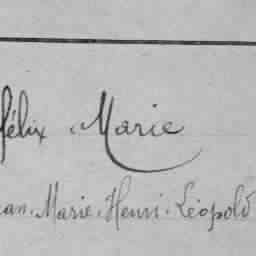 félix Marie
ean. Marie. Henri. Léopold